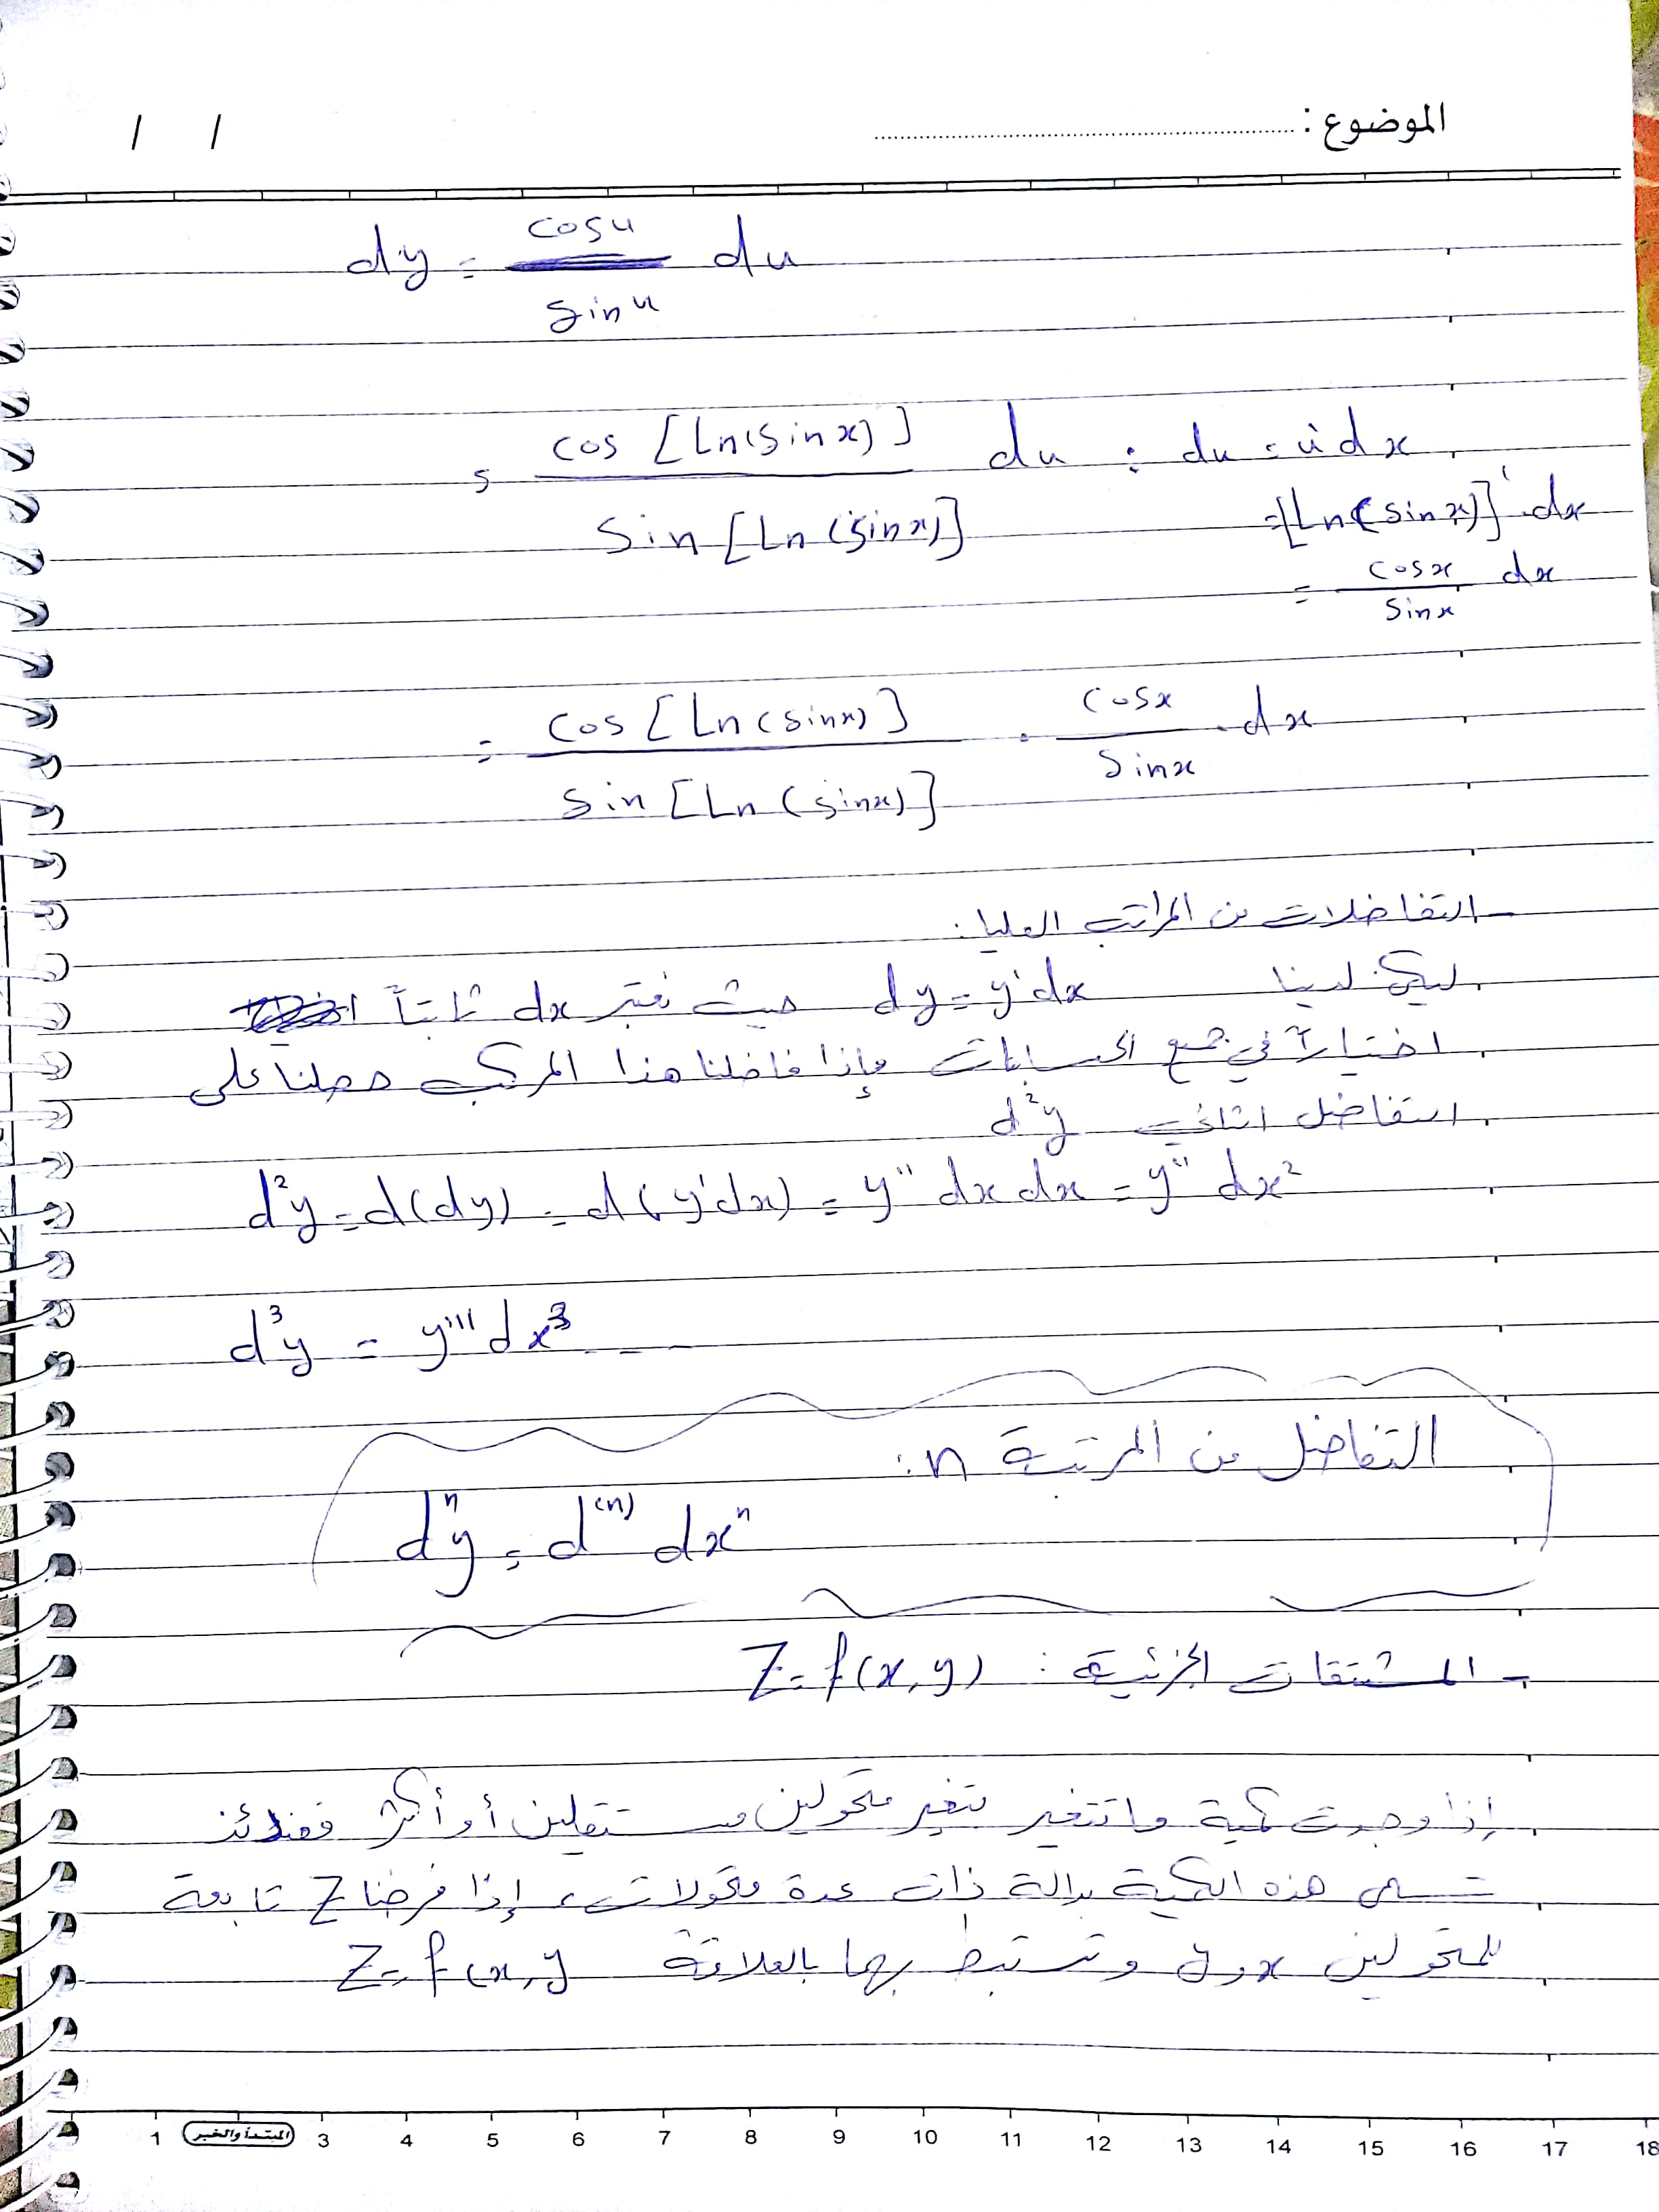 الموضوع : ........................ / /
dy = cosu / sinu du
= cos [Ln(sinx)] / sin [Ln(sinx)] du : du = u' dx
= [Ln(sinx)]' . dx
= cosx / sinx dx
= cos [Ln(sinx)] / sin [Ln(sinx)] . cosx / sinx . dx
- التفاضلات من المراتب العليا :
ليكن لدينا dy = y'dx حيث نعتبر dx ثابتاً
اختيارياً في جميع الحسابات وإذا فاضلنا هذا المركب حصلنا على
التفاضل الثاني d²y
d²y = d(dy) = d(y'dx) = y'' dx dx = y'' dx²
d³y = y''' dx³ - - -
التفاضل من المرتبة n :
dⁿy = d⁽ⁿ⁾ dxⁿ
- المشتقات الجزئية : Z = f(x,y)
إذا وجدت كمية ما تتغير بتغير متحولين مستقلين أو أكثر فعندئذ
تسمى هذه الكمية بدالة ذات عدة متحولات ، إذا فرضنا Z تابعة
للمتحولين x و y وترتبط بهما بالعلاقة Z = f(x,y
1 المبتدأ والخبر 3 4 5 6 7 8 9 10 11 12 13 14 15 16 17 18